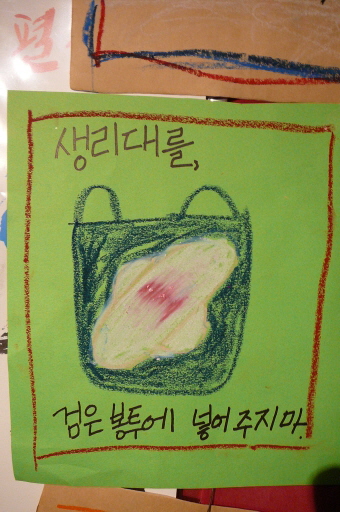 생리대를,
검은 봉투에 넣어 주지마.